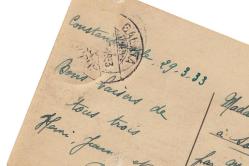 GALATA
Constantinople, 29-3-33
Bons baisers de
tous trois
Henri Jean et
Mada